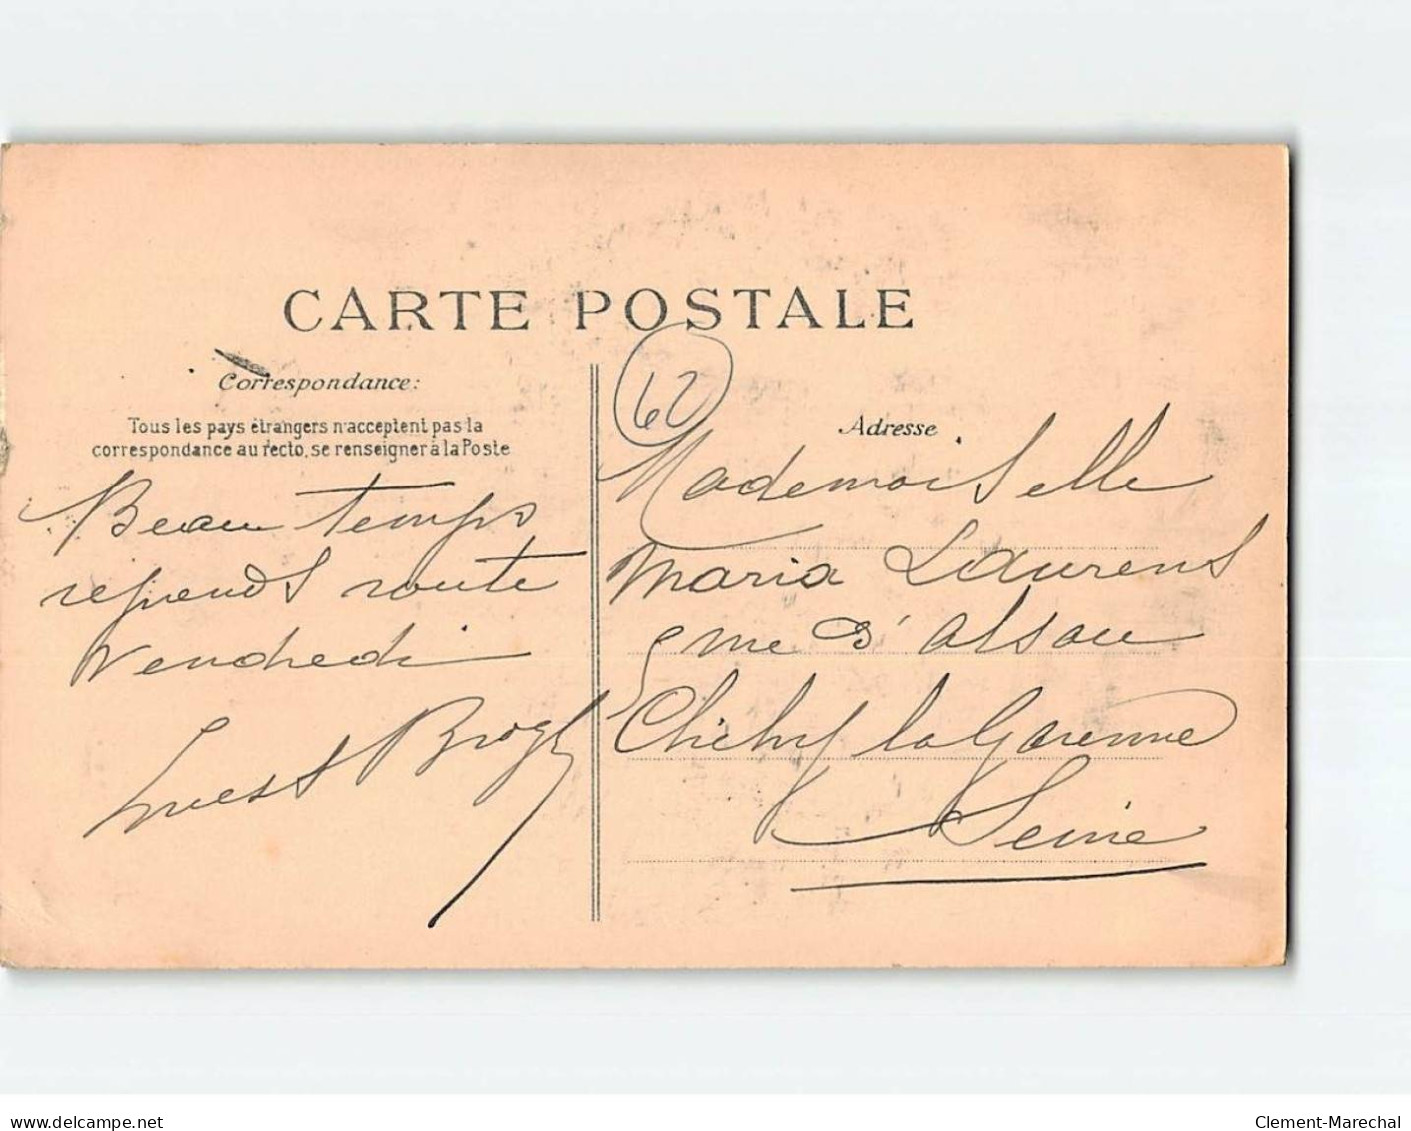 CARTE POSTALE
Correspondance:
Tous les pays étrangers n'acceptent pas la
correspondance au recto, se renseigner à la Poste
Beau temps
reprends route
Vendredi
60
Adresse
Mademoiselle
Maria Laurens
rue d'alsace
Clichy la Garenne
Seine
www.delcampe.net
Clement-Marechal